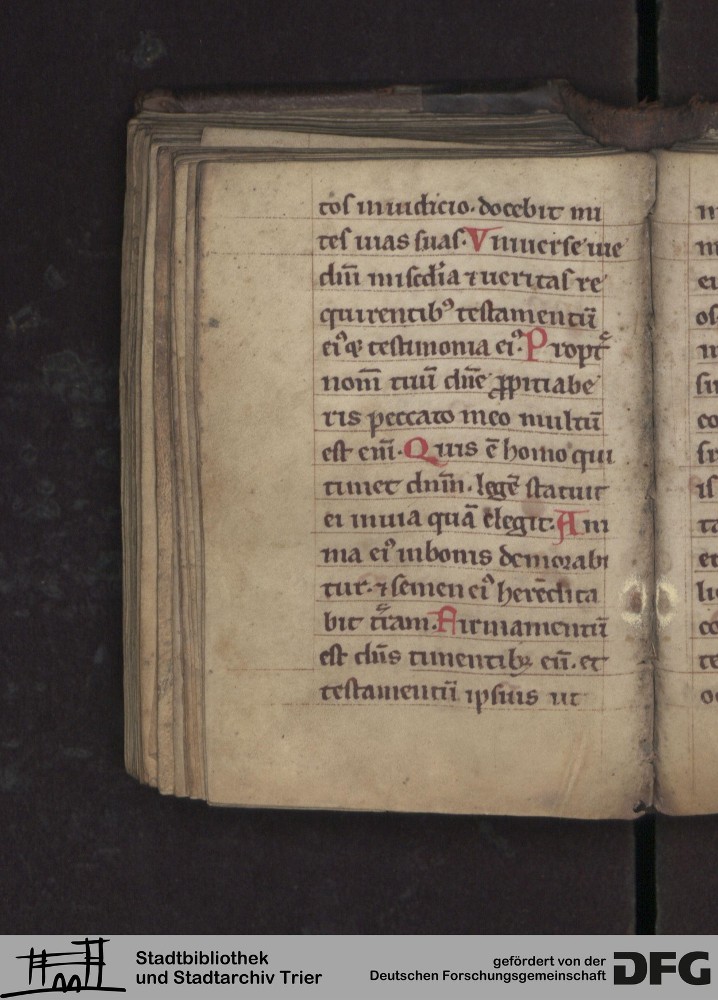 tos iniudicio. docebit mi
tes uias suas. Vniuerse uie
dn̄i mis̄cdi̾a ⁊ueritas re
quirentib᷒ testamentū
ei᷒ ⁊ testimonia ei᷒. Propt̾
nom̄ tuū dn̄e ꝓpitiabe
ris peccato meo multū
est eni̅. Quis ē homo qui
timet dnm̄. legē statuit
ei inuia quā elegit. Ani
ma ei᷒ inbonis demorabi
tur. ⁊semen ei᷒ heredita
bit t̾ram. Firmamentū
est dn̄s timentibꝫ eū. et
testamentū ipsius ut
Stadtbibliothek
und Stadtarchiv Trier
gefördert von der
Deutschen Forschungsgemeinschaft
DFG